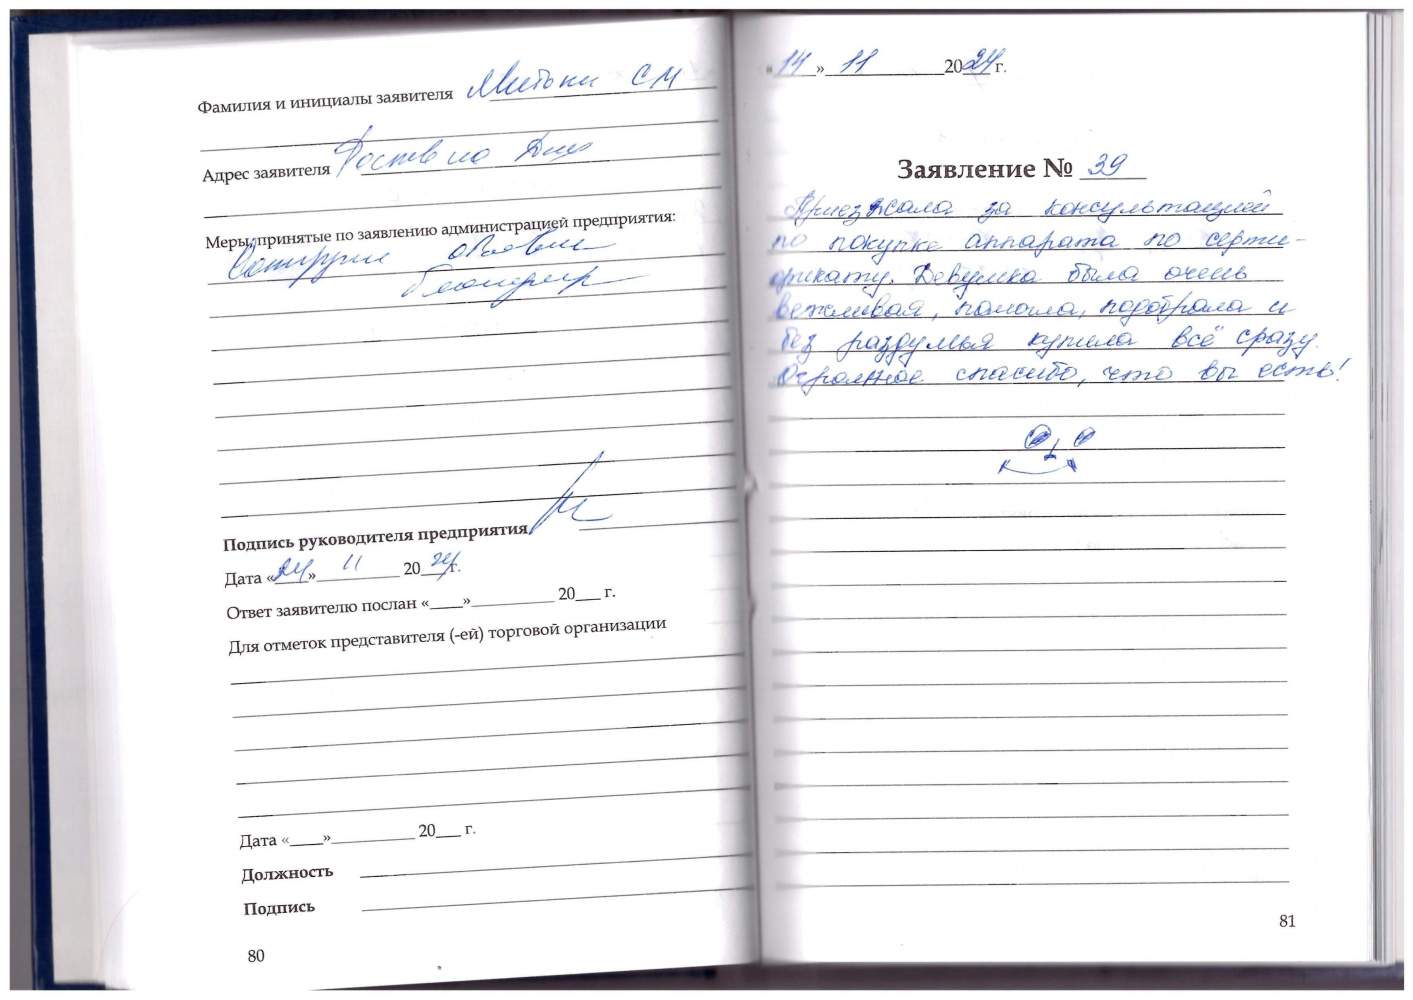 Фамилия и инициалы заявителя СМ
Адрес заявителя Ростов на Дону
Меры, принятые по заявлению администрацией предприятия:
Подпись руководителя предприятия
Дата «24» 11 2024 г.
Ответ заявителю послан «____»__________ 20___ г.
Для отметок представителя (-ей) торговой организации
Дата «____»__________ 20___ г.
Должность
Подпись
80
«14» 11 2024 г.
Заявление № 39
Приезжала за консультацией
по покупке аппарата по серти-
фикату. Девушка была очень
вежливая, помогла, подобрала и
без раздумья купила всё сразу.
Огромное спасибо, что вы есть!
81